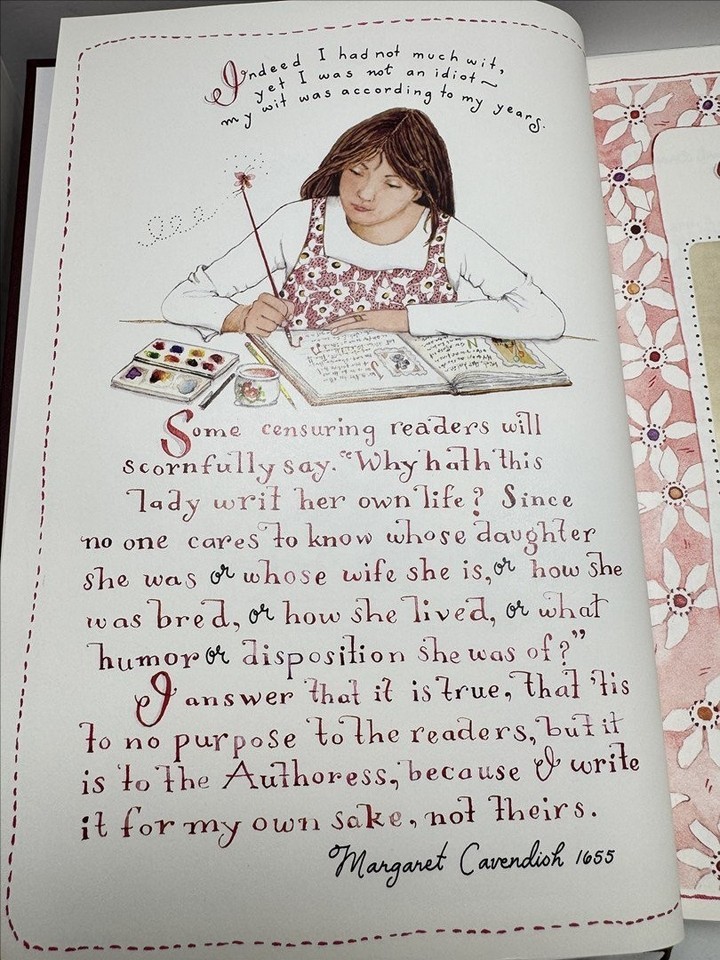 Indeed I had not much wit,
yet I was not an idiot~
my wit was according to my years.
Some censuring readers will
scornfully say. "Why hath this
lady writ her own life? Since
no one cares to know whose daughter
she was or whose wife she is, or how she
was bred, or how she lived, or what
humor or disposition she was of?"
I answer that it is true, that 'tis
to no purpose to the readers, but it
is to the Authoress, because I write
it for my own sake, not theirs.
Margaret Cavendish 1655